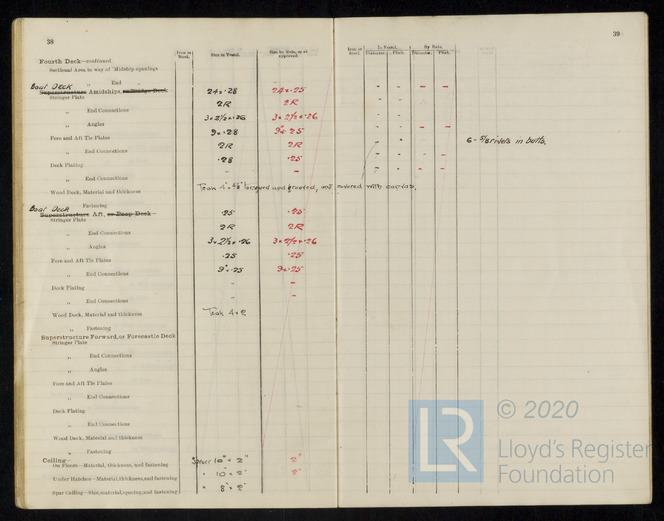 38
39
Iron or Steel.
Size in Vessel.
Size by Rule, or as approved.
Iron or Steel.
In Vessel.
By Rule.
Diameter. Pitch. Diameter. Pitch.
Fourth Deck—continued
Sectional Area in way of 'Midship openings
„ End „
Boat Deck
Superstructure Amidships, or Bridge Deck
Stringer Plate 24 × .28 24 × .25 - - - -
„ End Connections 2R 2R - -
„ Angles 3 × 2 1/2 × .26 3 × 2 1/2 × .26 - -
Fore and Aft Tie Plates 9 × .28 9 × .25 - -
„ End Connections 2R 2R 6 - 5/8 rivets in butts.
Deck Plating .28 .25 - - - -
„ End Connections - - - - - -
Wood Deck, Material and thickness Teak and covered with
„ Fastening
Boat Deck
Superstructure Aft, or Poop Deck—
Stringer Plate .25 .25
„ End Connections 2R 2R
„ Angles 3 × 2 1/2 × .26 3 × 2 1/2 × .26
Fore and Aft Tie Plates .25 .25
„ End Connections 9 × .25 9 × .25
Deck Plating - -
„ End Connections - -
Wood Deck, Material and thickness Teak
„ Fastening
Superstructure Forward, or Forecastle Deck
Stringer Plate
„ End Connections
„ Angles
Fore and Aft Tie Plates
„ End Connections
Deck Plating
„ End Connections
Wood Deck, Material and thickness
„ Fastening
Ceiling—
On Floors—Material, thickness, and fastening Spruce 10" × 2" 2"
Under Hatches—Material, thickness, and fastening " 10" × 2" 2"
Spar Ceiling—Size, material, spacing, and fastening " 8" × 2"
LR
© 2020
Lloyd's Register
Foundation